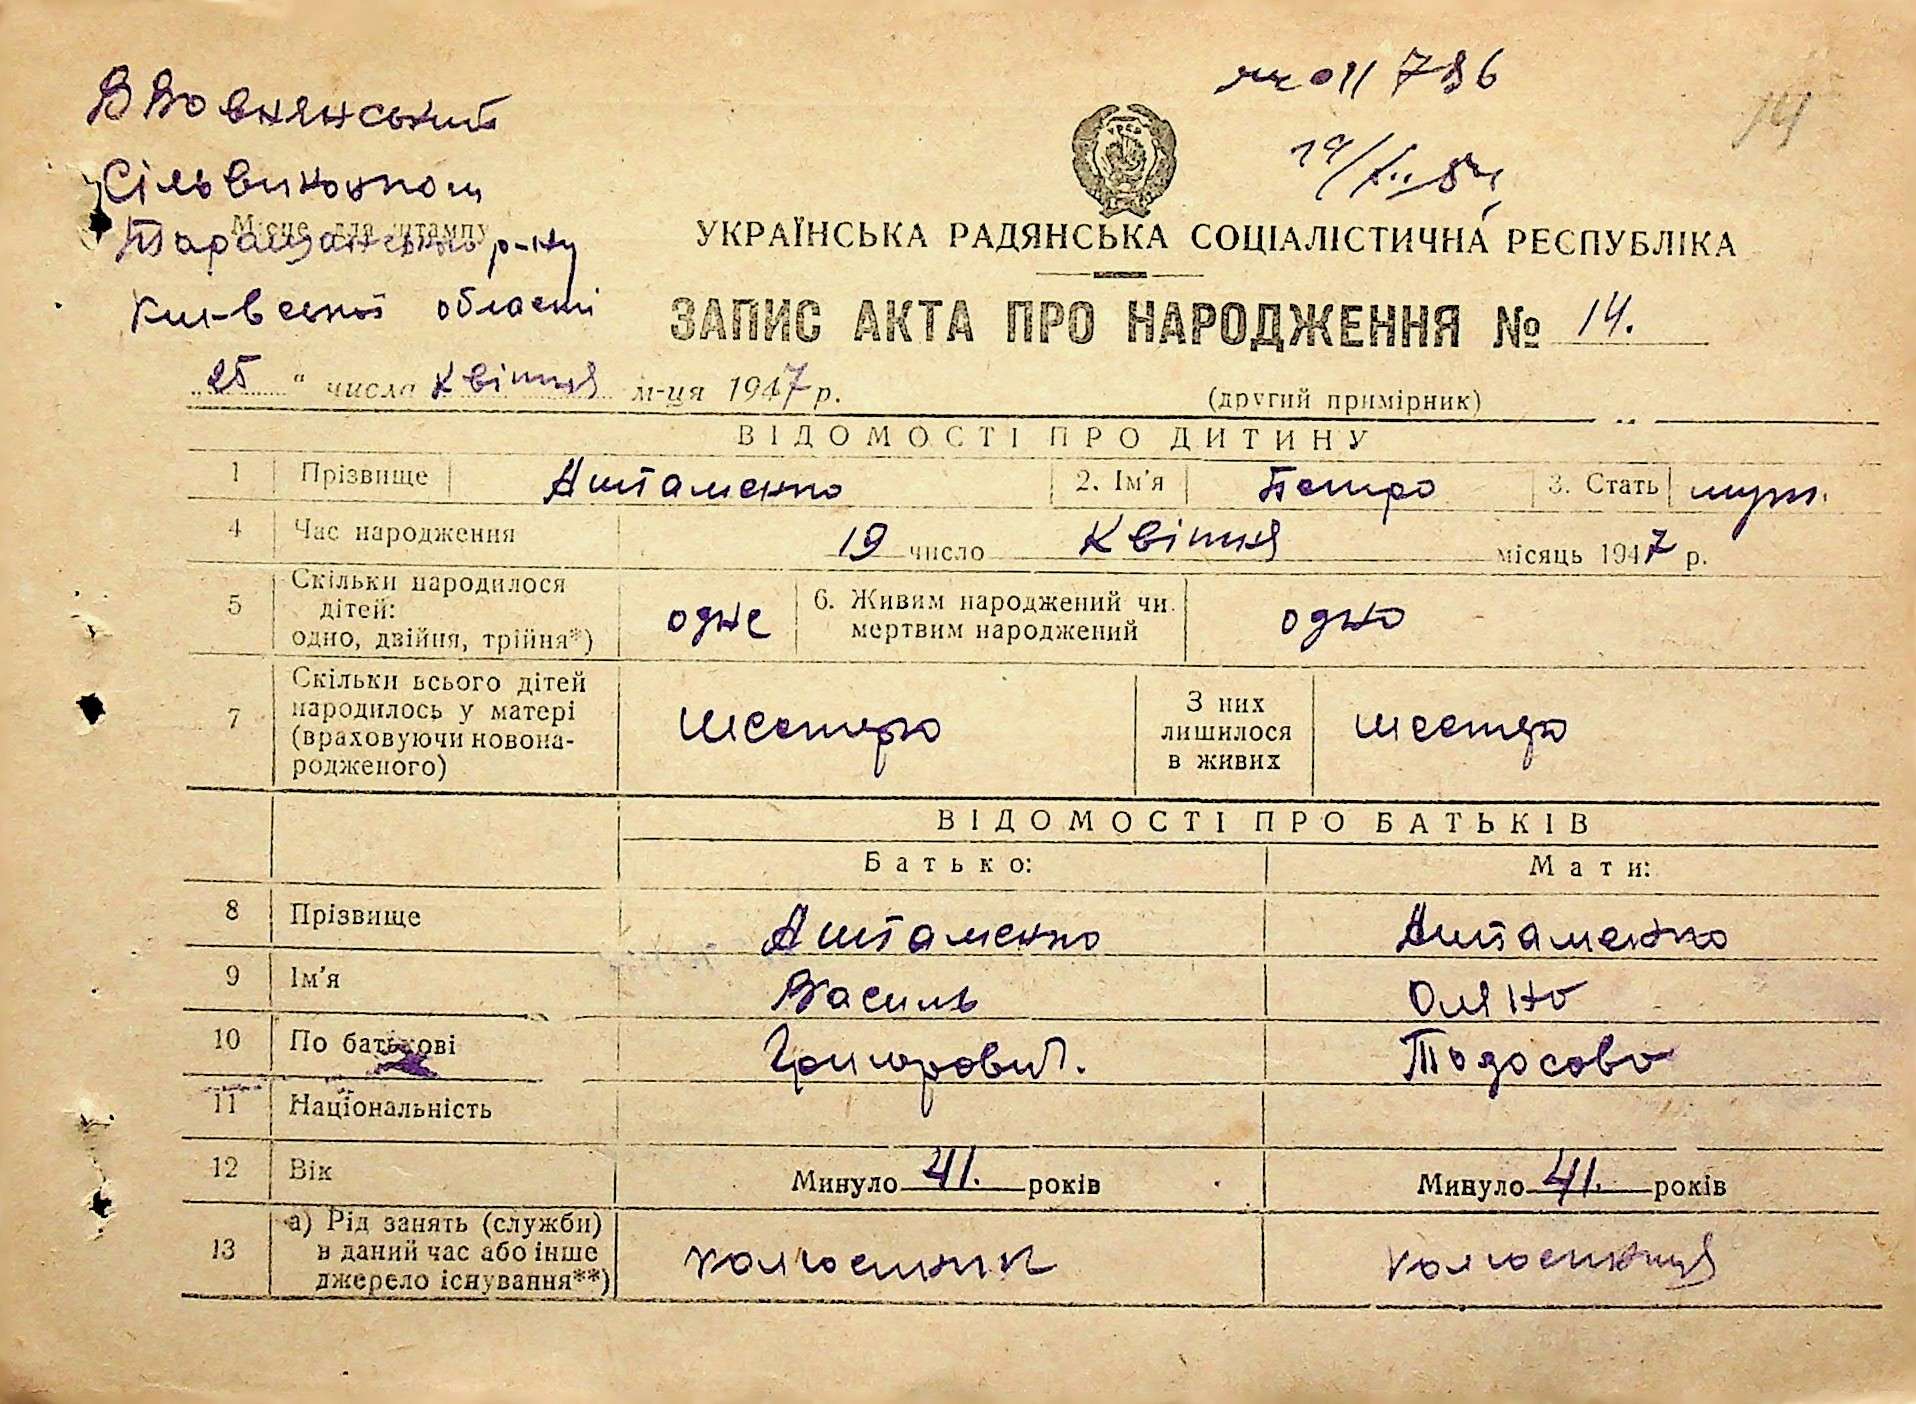 ВВовнянський
Сільвиконком
Місце для штампу
Таращанського р-ну
Київської області
14
011786
19/
УКРАЇНСЬКА РАДЯНСЬКА СОЦІАЛІСТИЧНА РЕСПУБЛІКА
ЗАПИС АКТА ПРО НАРОДЖЕННЯ № 14.
„ 25 “ числа квітня м-ця 1947 р.
(другий примірник)
ВІДОМОСТІ ПРО ДИТИНУ
1 Прізвище Аштаменко 2. Ім'я Петро 3. Стать муж.
4 Час народження 19 число Квітня місяць 1947 р.
5 Скільки народилося
дітей:
одно, двійня, трійня*) одне
6. Живим народжений чи
мертвим народжений одно
7 Скільки всього дітей
народилось у матері
(враховуючи новона-
родженого) шестеро
З них
лишилося
в живих шестеро
ВІДОМОСТІ ПРО БАТЬКІВ
Батько: Мати:
8 Прізвище Аштаменко Аштаменко
9 Ім'я Василь Оляна
10 По батькові Григорович. Тодосова
11 Національність
12 Вік Минуло 41. років Минуло 41. років
13 а) Рід занять (служби)
в даний час або інше
джерело існування**) колгоспник колгоспниця